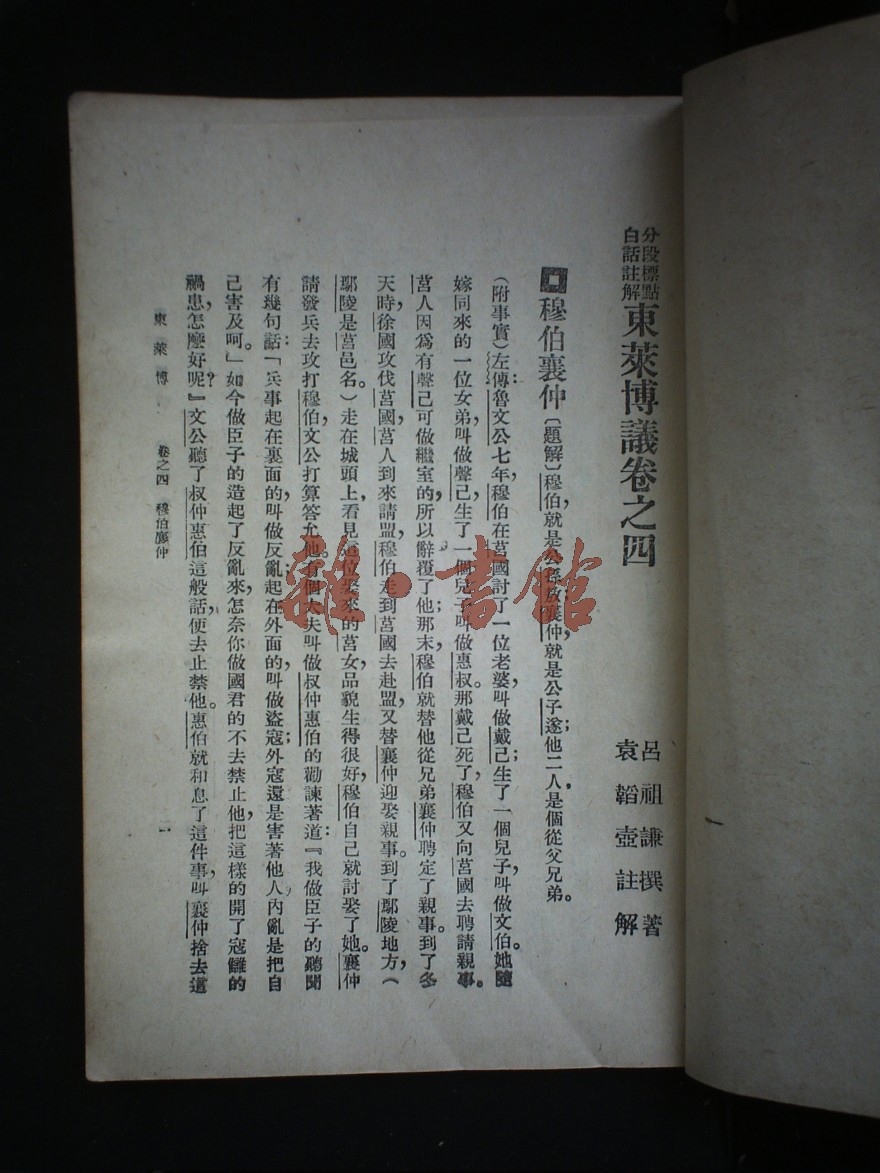 分段標點
白話註解
東萊博議卷之四
呂祖謙撰著
袁韜壺註解
穆伯襄仲〔題解〕穆伯,就是公孫敖;襄仲,就是公子遂;他二人,是個從父兄弟。
(附事實)左傳:魯文公七年,穆伯在莒國討了一位老婆,叫做戴己;生了一個兒子,叫做文伯。她隨
嫁同來的一位女弟,叫做聲己;生了一個兒子,叫做惠叔。那戴己死了,穆伯又向莒國去聘請親事。
莒人因爲有聲己可做繼室的,所以辭覆了他;那末,穆伯就替他從兄弟襄仲聘定了親事。到了冬
天時,徐國攻伐莒國,莒人到來請盟,穆伯走到莒國去赴盟,又替襄仲迎娶親事。到了鄢陵地方,(
鄢陵是莒邑名。)走在城頭上,看見這位娶來的莒女,品貌生得很好,穆伯自己就討娶了她。襄仲
請發兵去攻打穆伯,文公打算答允他。有個大夫叫做叔仲惠伯的勸諫著道:『我做臣子的聽聞
有幾句話:「兵事起在裏面的,叫做反亂;起在外面的,叫做盜寇;外寇還是害著他人,內亂是把自
己害及呵。」如今做臣子的造起了反亂來,怎奈你做國君的不去禁止他,把這樣的開了寇讎的
禍患,怎麼好呢?』文公聽了叔仲惠伯這般話,便去止禁他。惠伯就和息了這件事,叫襄仲捨去這
東萊博 卷之四 穆伯襄仲 一
雜·書館